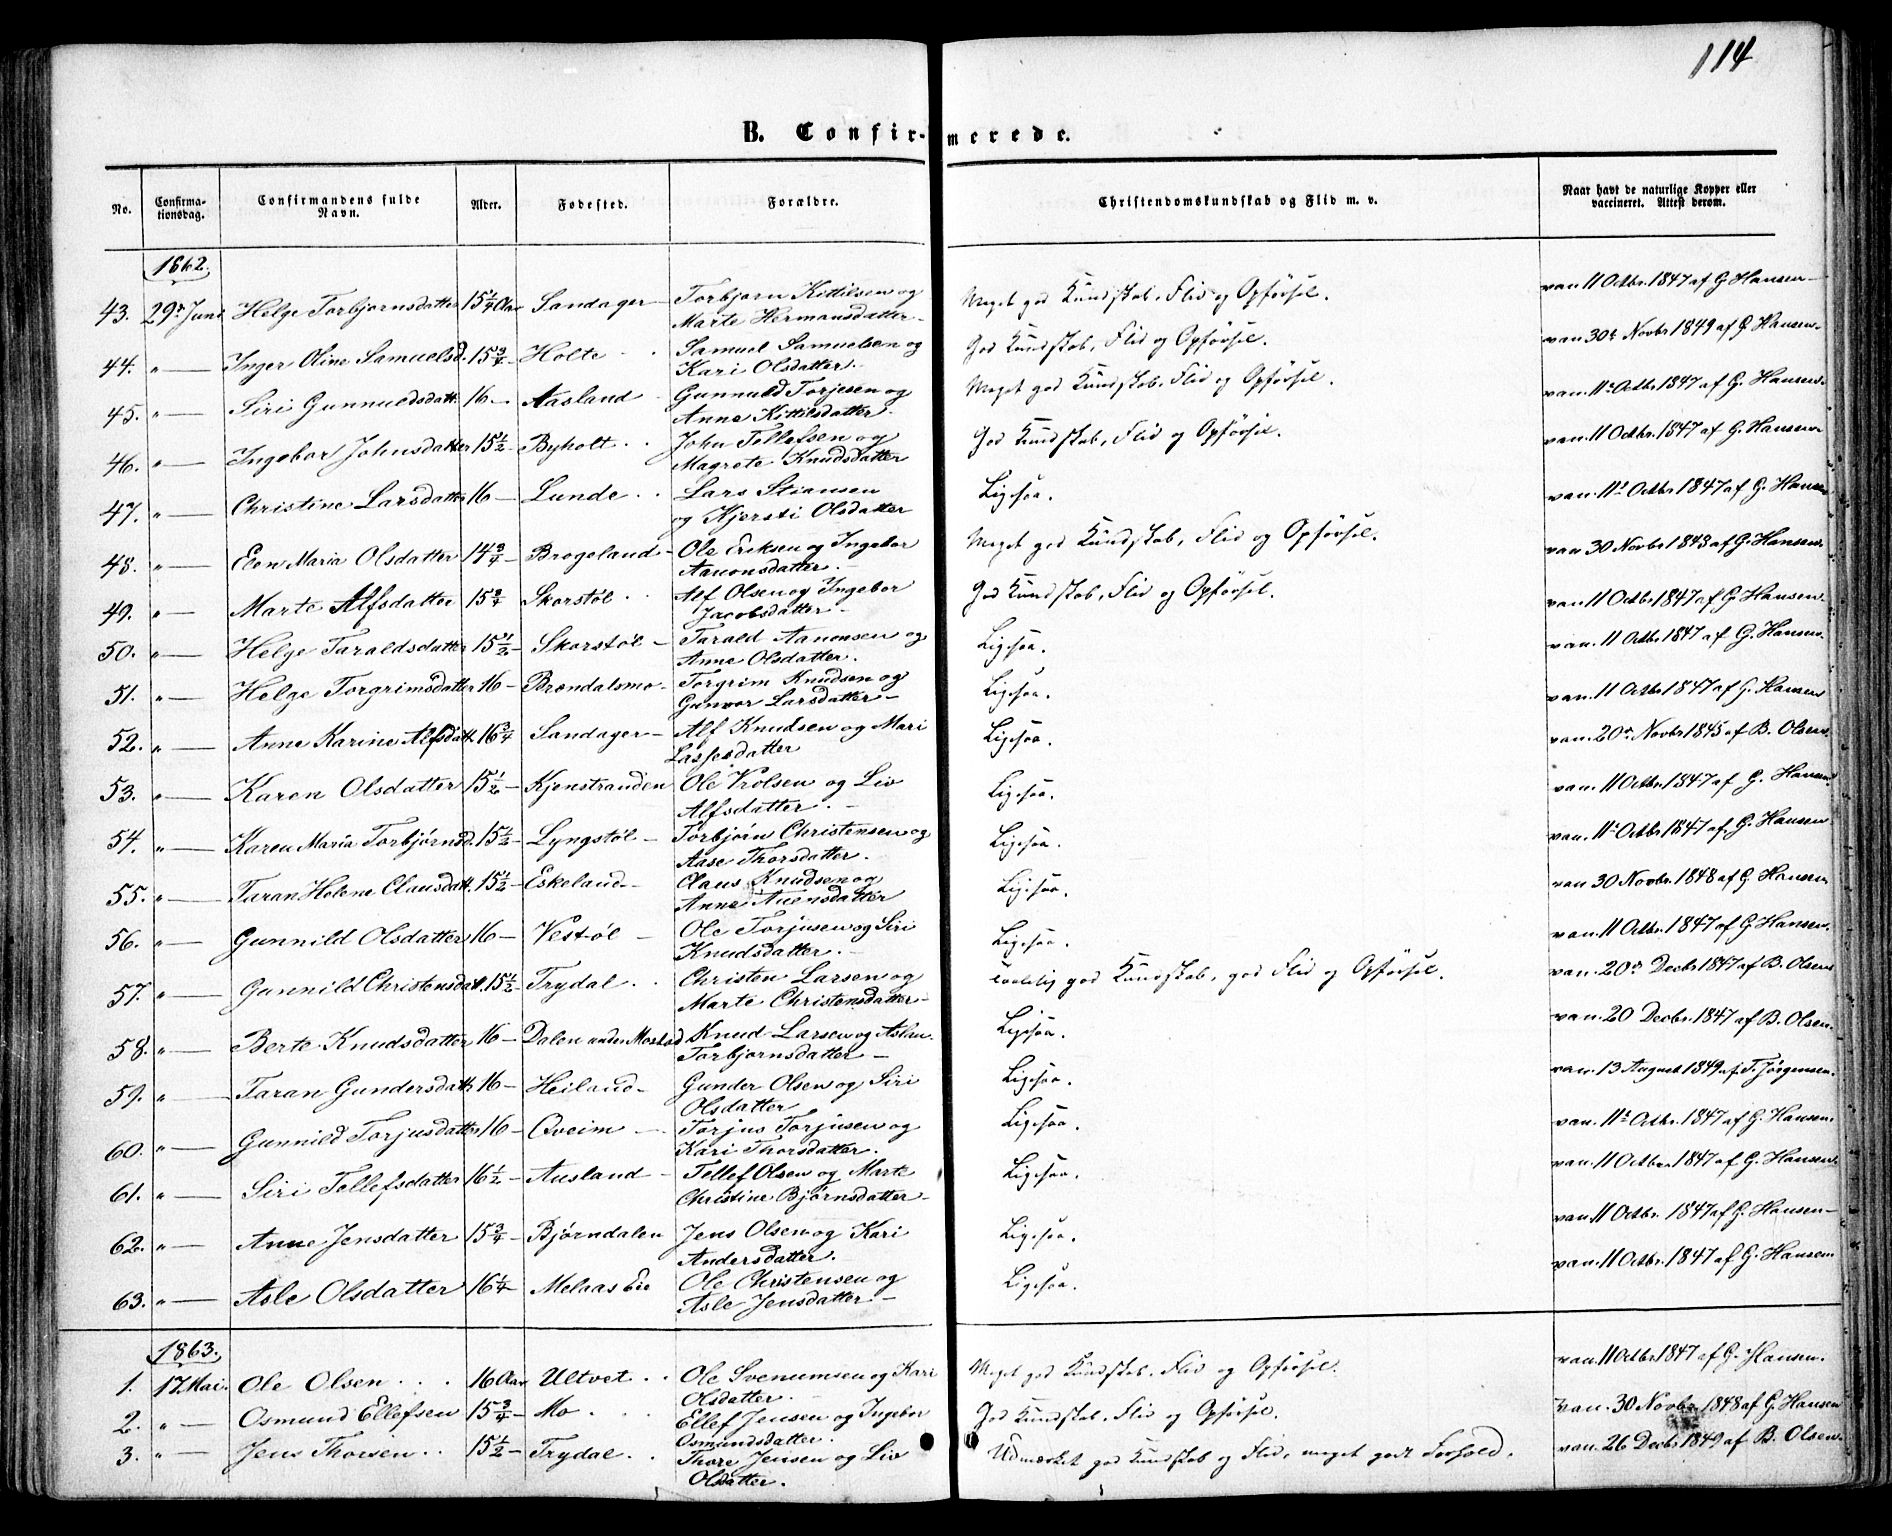 114
B. Confirmerede.
No. Confirmationsdag. Confirmandens fulde Navn. Alder. Fodested. Forældre. Christendomskundskab og Flid m. v. Naar havt de naturlige Kopper eller vaccineret. Attest derom.
1862.
43. 29de Juni Helge Torbjørnsdatter 15 1/4 Aar Sandager Torbjørn Kittilsen og Meget god Kundskab, Flid og Opførsel. van. 11 Octbr. 1847 af G. Hansen
Marte Hermansdatter
44. " Inger Oline Samuelsd. 15 3/4 Holte Samuel Samuelsen og God Kundskab, Flid og Opførsel. van. 30te Novbr 1849 af G. Hansen
Kari Olsdatter
45. " Siri Gunnuldsdatt. 16 Aasland Gunnuld Torjesen og Meget god Kundskab, Flid og Opførsel. van. 11te Octbr. 1847 af G. Hansen
Anne Kittilsdatter
46. " Ingebor Johnsdatter 15 1/2 Byholt John Tellefsen og God Kundskab, Flid og Opførsel. van. 11 Octbr. 1847 af G. Hansen
Magrete Knudsdatter
47. " Christine Larsdatter 16 Lunde Lars Stiansen Ligesaa. van. 11te Octbr 1847 af G. Hansen
og Kjersti Olsdatter
48. " Elen Maria Olsdatter 14 3/4 Brogeland Ole Eriksen og Ingebor Meget god Kundskab, Flid og Opførsel. van 30 Novbr 1848 af G. Hansen
Aanonsdatter.
49. " Marte Alfsdatter 15 3/4 Skorstøl Alf Olsen og Ingebor God Kundskab, Flid og Opførsel. van. 11 Octbr. 1847 af G. Hansen.
Jacobsdatter
50. " Helge Taraldsdatter 15 1/2 Skorstøl Tarald Aanonsen og Ligesaa. van. 11 Octbr. 1847 af G. Hansen.
Anne Olsdatter.
51. " Helge Torgrimsdatter 16 Brændalsmo Torgrim Knudsen og Ligesaa. van. 11 Octbr 1847 af G. Hansen
Gunvor Larsdatter
52. " Anne Karine Alfsdatt. 16 3/4 Sandager Alf Knudsen og Mari Ligesaa. van. 20de Novbr 1845 af B. Olsen.
Lassesdatter
53. " Karen Olsdatter 15 1/2 Kjenstranden Ole Vrolsen og Liv Ligesaa. van. 11 Octbr. 1847 af G. Hansen
Alfsdatter.
54. " Karen Maria Torbjørnsd. 15 1/2 Lyngstøl Torbjørn Christensen og Ligesaa. van. 11te Octbr. 1847 af G. Hansen
Aase Thorsdatter.
55. " Taran Helene Clausdatt. 15 1/2 Eskeland Claus Knudsen og Ligesaa. van 30 Novbr. 1848 af G. Hansen
Anne Auensdatter
56. " Gunnild Olsdatter 16 Vestøl Ole Torjusen og Siri Ligesaa. van. 11 Octbr. 1847 af G. Hansen.
Knudsdatter.
57. " Gunnild Christensdatt. 15 1/2 Trydal Christen Larsen og temmelig god Kundskab, god Flid og Opførsel. van. 20de Decbr 1847 af B. Olsen
Marte Christensdatter
58. " Berte Knudsdatter 16 Dalen under Mostad Knud Larsen og Aslau Ligesaa. van. 20 Decbr. 1847 af B. Olsen.
Torbjørnsdatter
59. " Taran Gundersdatt. 16 Heiland Gunder Olsen og Siri Ligesaa. van. 13 August 1849 af T. Jørgensen.
Olsdatter
60. " Gunnild Torjusdatter 16 Qveim Torjus Torjusen og Ligesaa. van. 11te Octbr. 1847 af G. Hansen.
Kari Thorsdatter.
61. " Siri Tellefsdatter 16 1/2 Aasland Tellef Olsen og Marte Ligesaa. van. 11 Octbr. 1847 af G. Hansen.
Christine Bjørnsdatter
62. " Anne Jensdatter 15 3/4 Bjørndalen Jens Olsen og Kari Ligesaa. van. 11 Octbr. 1847 af G. Hansen
Andersdatter.
63. " Asle Olsdatter 16 1/4 Melaas Eie Ole Christensen og Ligesaa. van. 11 Octbr. 1847 af G. Hansen
Asle Jensdatter
1863.
1. 17. Mai. Ole Olsen 16 Aar Ultvet Ole Svenumsen og Kari Meget god Kundskab, Flid og Opførsel. van. 11 Octbr. 1847 af G. Hansen.
Olsdatter.
2. " Osmund Ellefsen 15 3/4 Mo Ellef Jensen og Ingebor God Kundskab, Flid og Opførsel. van. 30 Novbr. 1848 af G. Hansen
Osmundsdatter.
3. " Jens Thorsen 15 1/2 Trydal Thore Jensen og Liv Udmærket god Kundskab og Flid, meget godt Forhold. van. 26 Decbr 1849 af B. Olsen
Olsdatter.